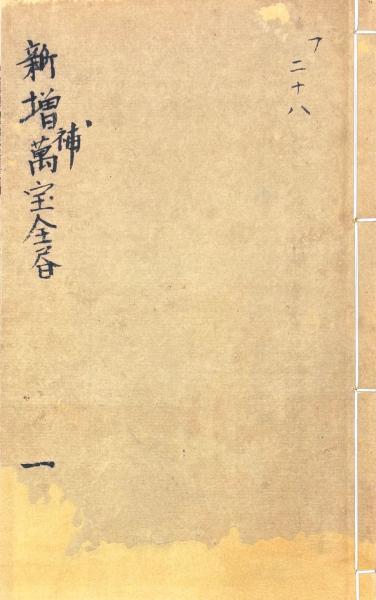 フ
二十八
新増補萬宝全書
一